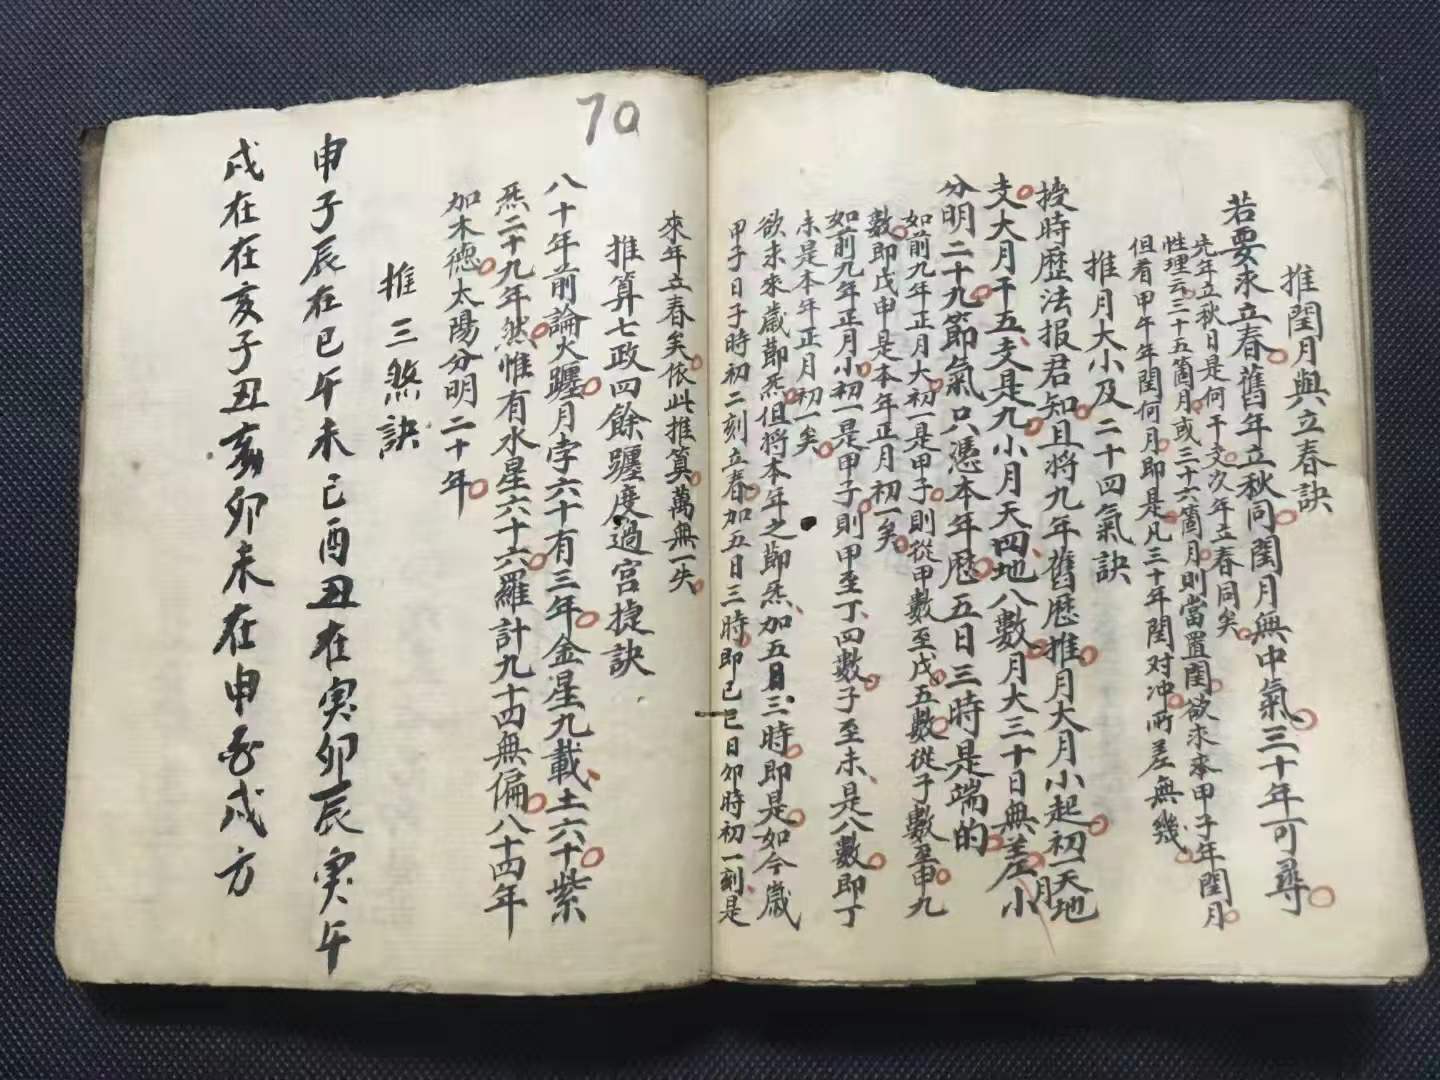 推閏月與立春訣
若要求立春舊年立秋同閏月無中氣三十年可尋
先年立秋日是何干支次年立春同矣
性理云三十五箇月或三十六箇月則當置閏欲求本甲子年閏月
但看甲午年閏何月即是凡三十年閏对冲所差無幾
推月大小及二十四氣訣
授時歷法报君知且將九年舊歷推月大月小起初一天地
支大月干五支是九小月天四地八數月大三十日無差小月
分明二十九節氣只憑本年歷五日三時是端的
如前九年正月大初一是甲子則從甲數至戊五數從子數至申九
數即戊申是本年正月初一矣
如前九年正月小初一是甲子則甲至丁四數子至未是八數即丁
未是本年正月初一矣
欲未來歲節炁但將本年之節炁加五日三時即是如今歲
甲子日子時初二刻立春加五日三時即己巳日卯時初一刻是
70
來年立春矣依此推算萬無一失
推算七政四餘躔度過宮捷訣
八十年前論火躔月孛六十有三年金星九載土六十紫
炁二十九年然惟有水星六十六羅計九十四無偏八十四年
加木德太陽分明二十年
推三煞訣
申子辰在巳午未巳酉丑在寅卯辰寅午
戌在在亥子丑亥卯未在申酉戌方